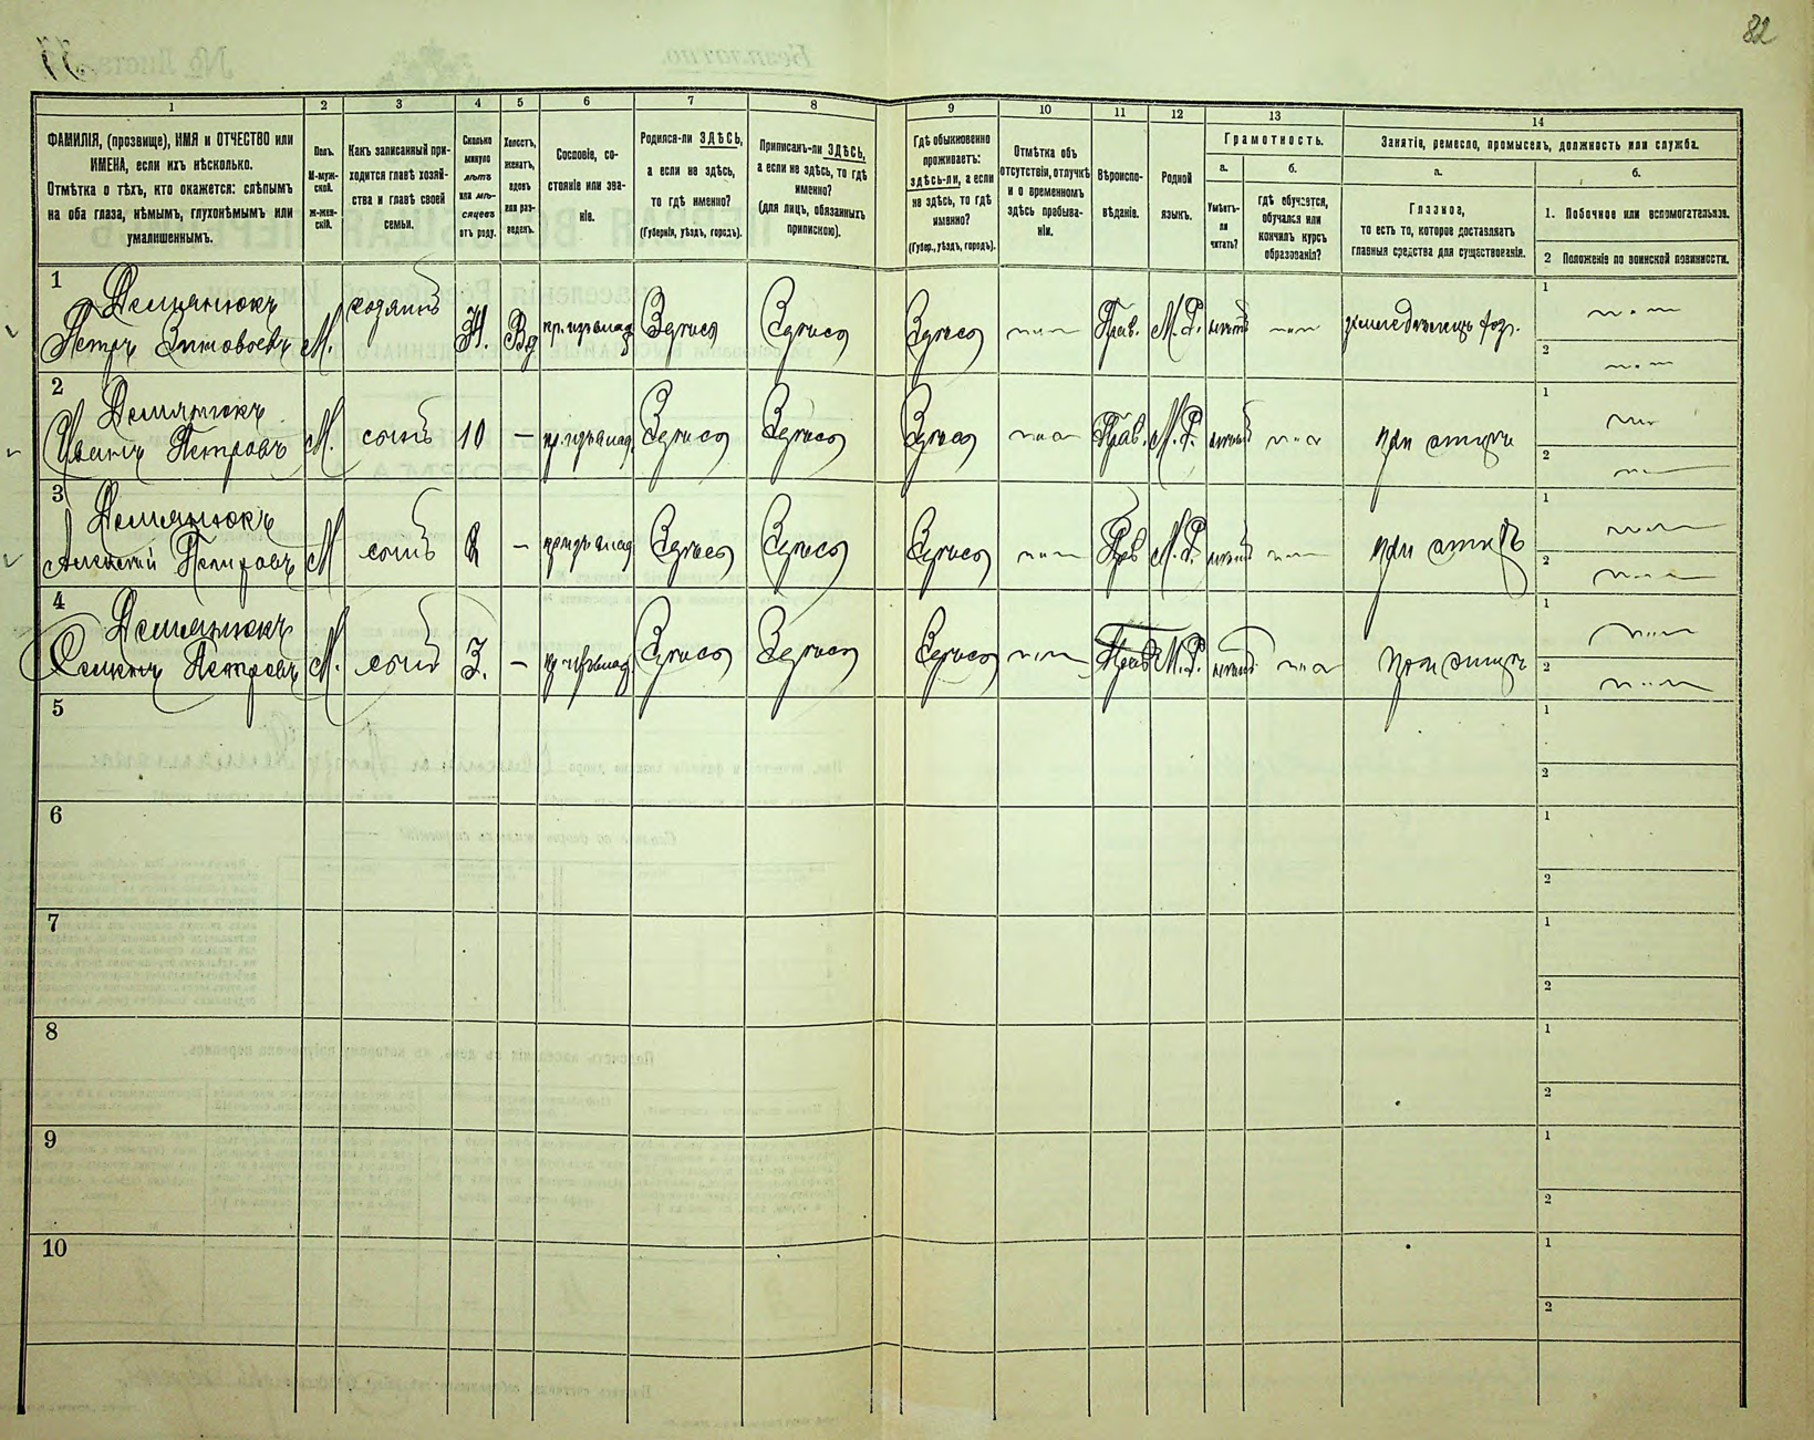 82
1 2 3 4 5 6 7 8 9 10 11 12 13 14
ФАМИЛІЯ, (прозвище), ИМЯ и ОТЧЕСТВО или
ИМЕНА, если ихъ нѣсколько.
Отмѣтка о тѣхъ, кто окажется: слѣпымъ
на оба глаза, нѣмымъ, глухонѣмымъ или
умалишеннымъ.
Полъ.
М-муж-
ской.
Ж-жен-
скій.
Какъ записанный при-
ходится главѣ хозяй-
ства и главѣ своей
семьи.
Сколько
минуло
лѣтъ
или мѣ-
сяцевъ
отъ роду.
Холостъ,
женатъ,
вдовъ
или раз-
веденъ.
Сословіе, со-
стояніе или зва-
ніе.
Родился-ли ЗДѢСЬ,
а если не здѣсь,
то гдѣ именно?
(Губернія, уѣздъ, городъ).
Приписанъ-ли ЗДѢСЬ,
а если не здѣсь, то гдѣ
именно?
(для лицъ, обязанныхъ
припискою).
Гдѣ обыкновенно
проживаетъ:
здѣсь-ли, а если
не здѣсь, то гдѣ
именно?
(Губер., уѣздъ, городъ).
Отмѣтка объ
отсутствіи, отлучкѣ
и о временномъ
здѣсь пребыва-
ніи.
Вѣроиспо-
вѣданіе.
Родной
языкъ.
Грамотность.
а.
Умѣетъ-
ли
читать?
б.
гдѣ обучается,
обучался или
кончилъ курсъ
образованія?
Занятіе, ремесло, промыселъ, должность или служба.
а.
Главное,
то есть то, которое доставляетъ
главныя средства для существованія.
б.
1. Побочное или вспомогательное.
2 Положеніе по воинской повинности.
1
Демянюкъ
Петръ
М. хозяинъ Вд Здѣсь Здѣсь Здѣсь Прав. М. Р.
1
2
2
Демянюкъ
Иванъ Петровъ М. сынъ 10 — Здѣсь Здѣсь Здѣсь Прав. М. Р. при отцѣ
1
2
3
Демянюкъ
Алексѣй Петровъ М сынъ — Здѣсь Здѣсь Здѣсь Прав М. Р. при отцѣ
1
2
4
Демянюкъ
Семенъ Петровъ М. сынъ 3. — Здѣсь Здѣсь Здѣсь Прав М. Р. при отцѣ
1
2
5
1
2
6
1
2
7
1
2
8
1
2
9
1
2
10
1
2